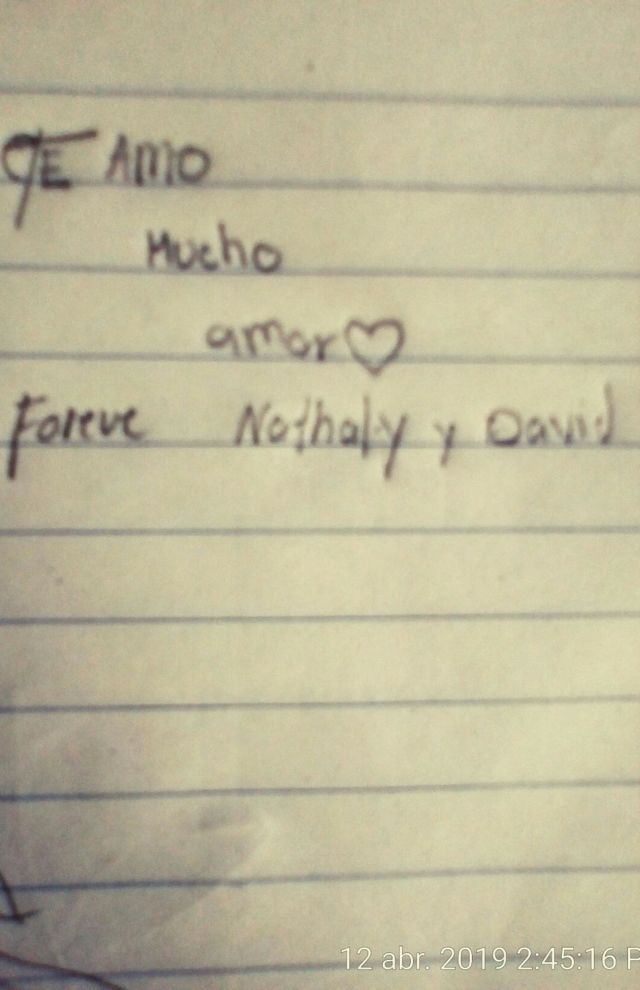 TE AMO
Mucho
amor♡
Foreve Nathaly y David
12 abr. 2019 2:45:16 P